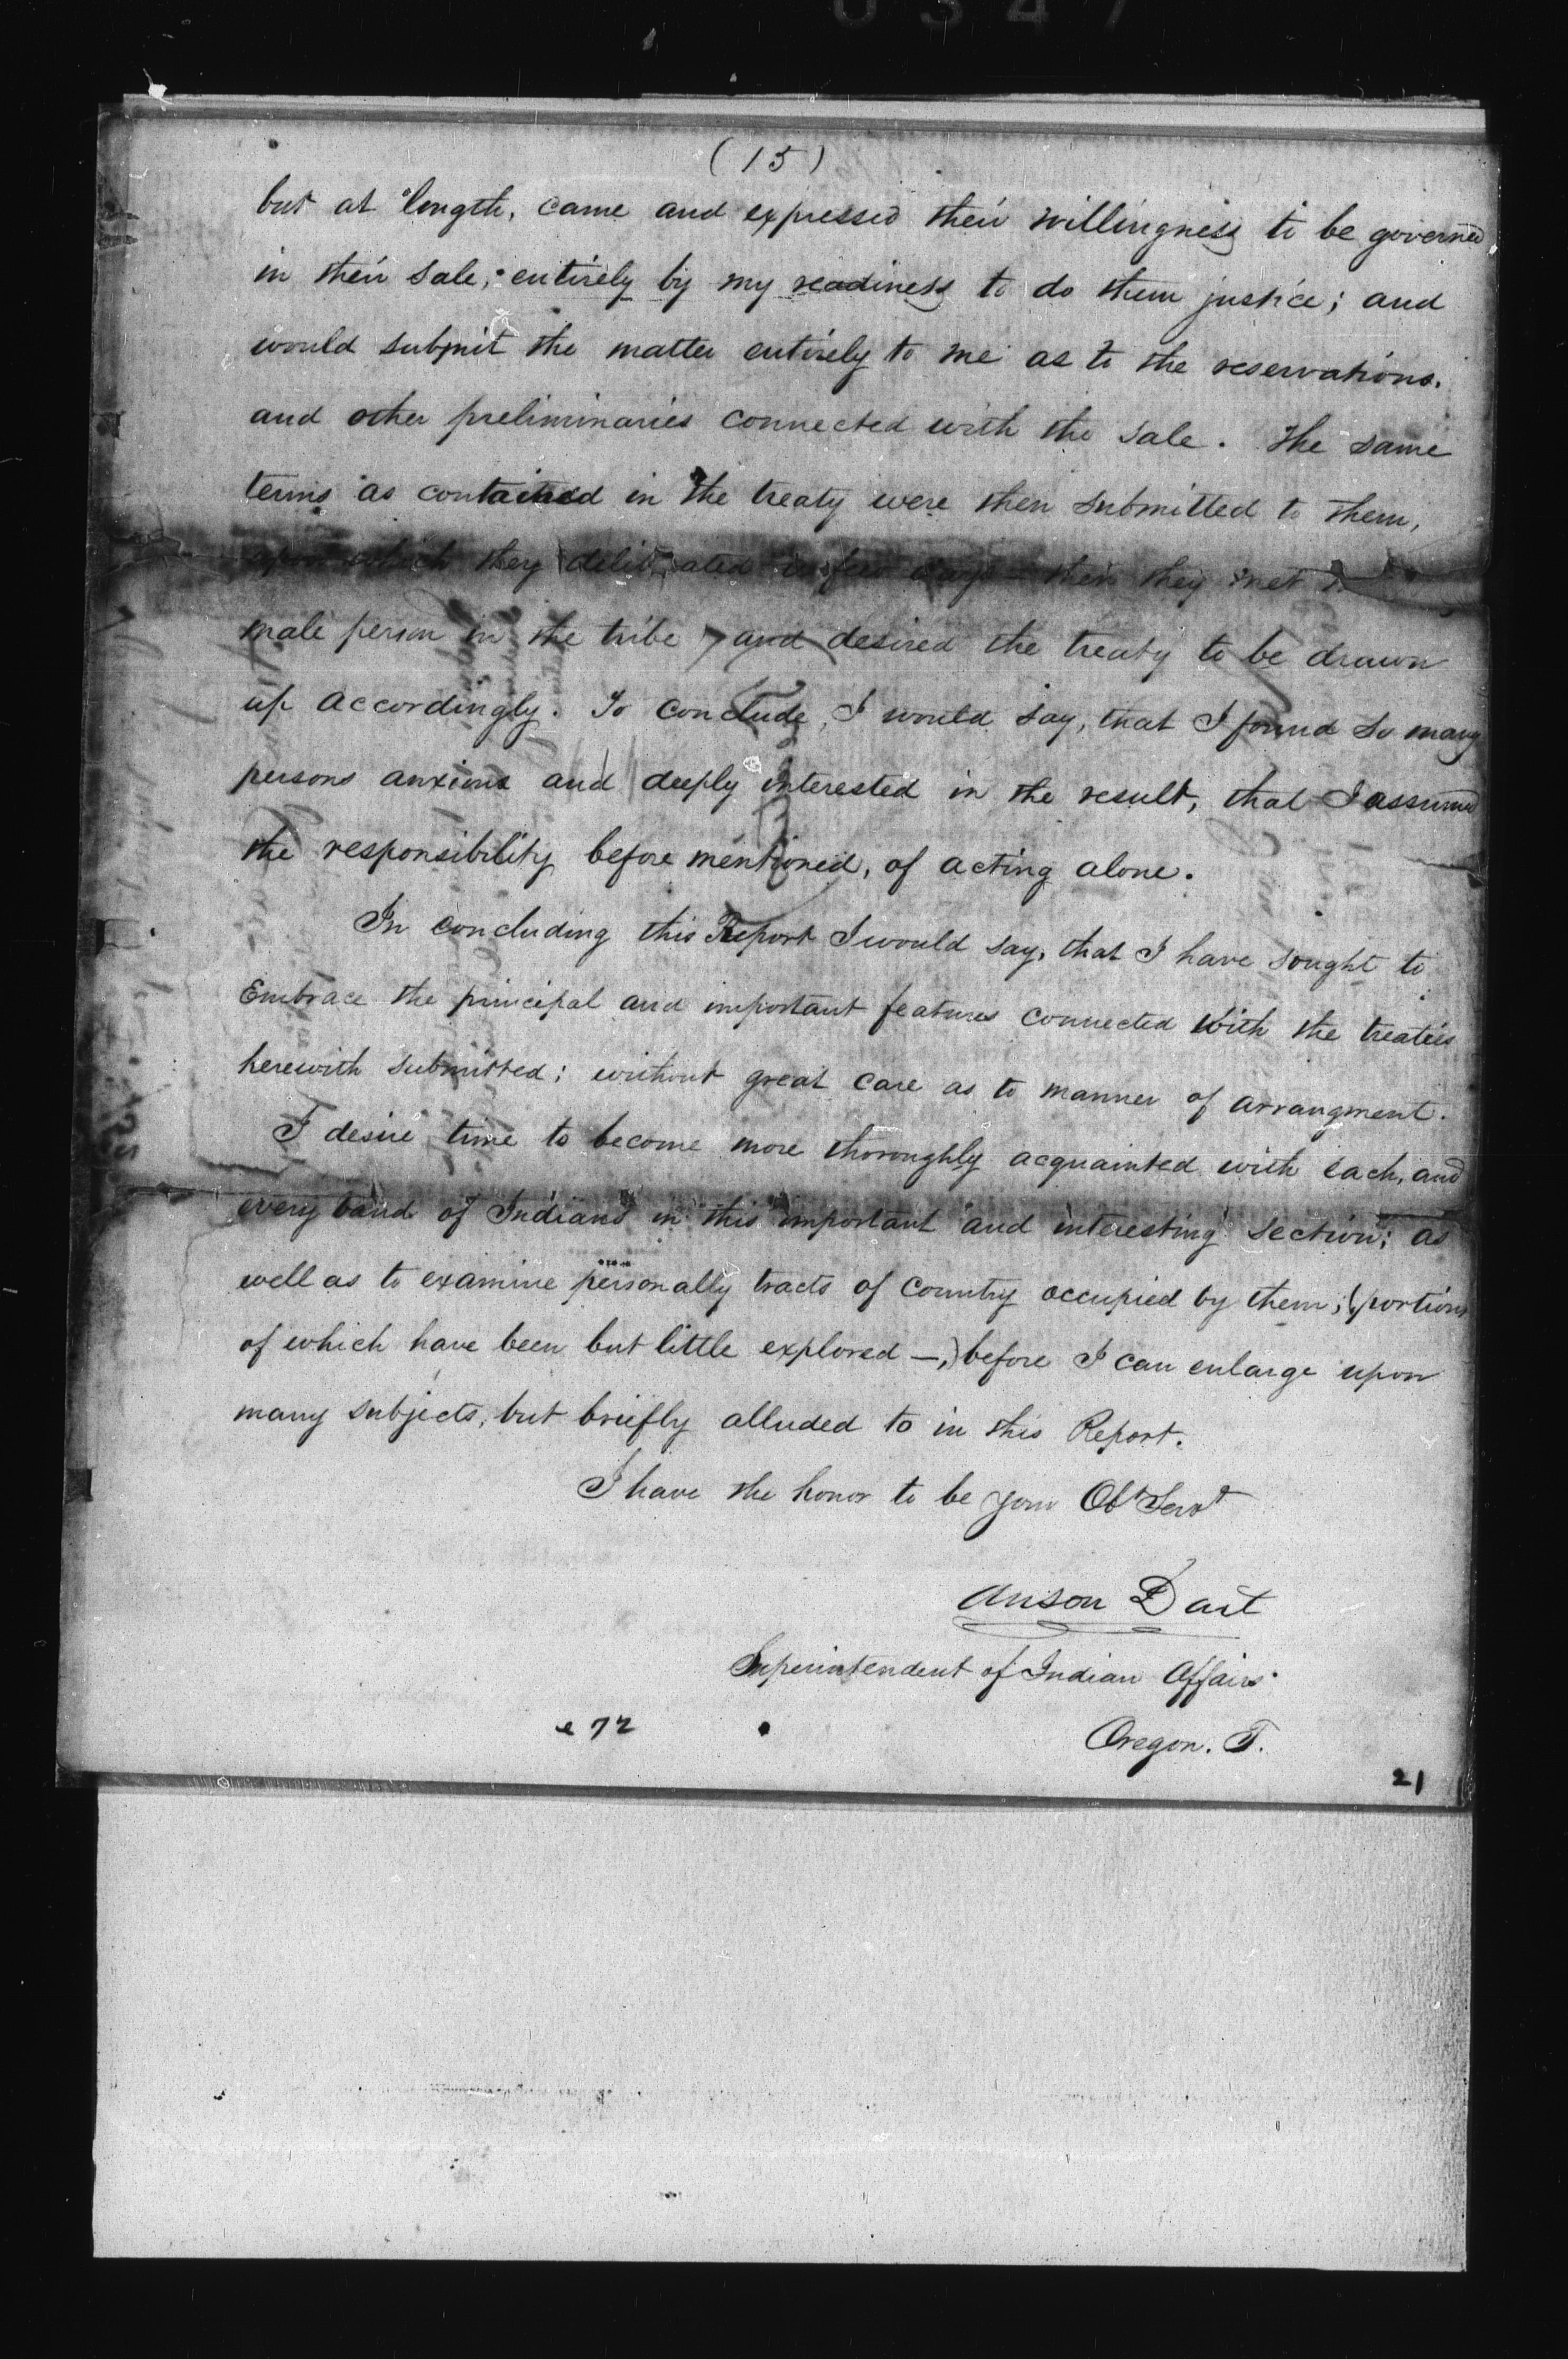 0347
(15)
but at length, came and expressed their willingness to be governed
in their sale, entirely by my readiness to do them justice; and
would submit the matter entirely to me as to the reservations.
and other preliminaries connected with the sale. The same
terms as contained in the treaty were then submitted to them,
upon which they deliberated a few days - then they met
male person in the tribe, and desired the treaty to be drawn
up accordingly. To conclude, I would say, that I found so many
persons anxious and deeply interested in the result, that I assumed
the responsibility before mentioned, of acting alone.
In concluding this Report I would say, that I have sought to
Embrace the principal and important features connected with the treaties
herewith submitted; without great care as to manner of arrangment.
I desire time to become more thoroughly acquainted with each, and
every band of Indians in this important and interesting section; as
well as to examine personally tracts of Country occupied by them; (portions
of which have been but little explored —,) before I can enlarge upon
many subjects, but briefly alluded to in this Report.
I have the honor to be your Obt Servt
Anson Dart
Superintendent of Indian Affairs
Oregon. T.
e 72
21